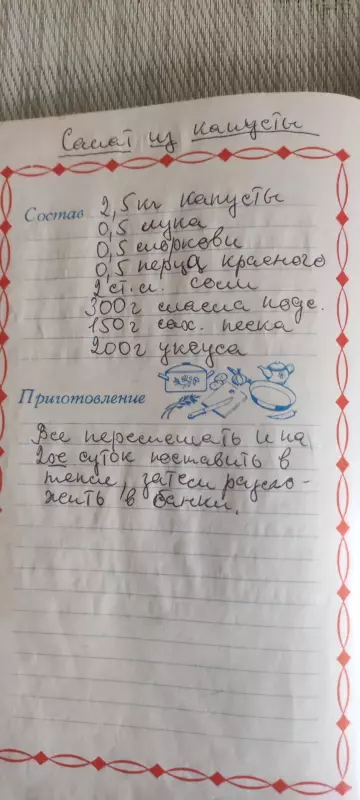 Салат из капусты
Состав 2,5 кг капусты
0,5 лука
0,5 моркови
0,5 перца красного
2 ст.л. соли
300 г масла подс.
150 г сах. песка
200 г уксуса
Приготовление
Все перемешать и на
2ое суток поставить в
тепле, затем разло-
жить в банки.